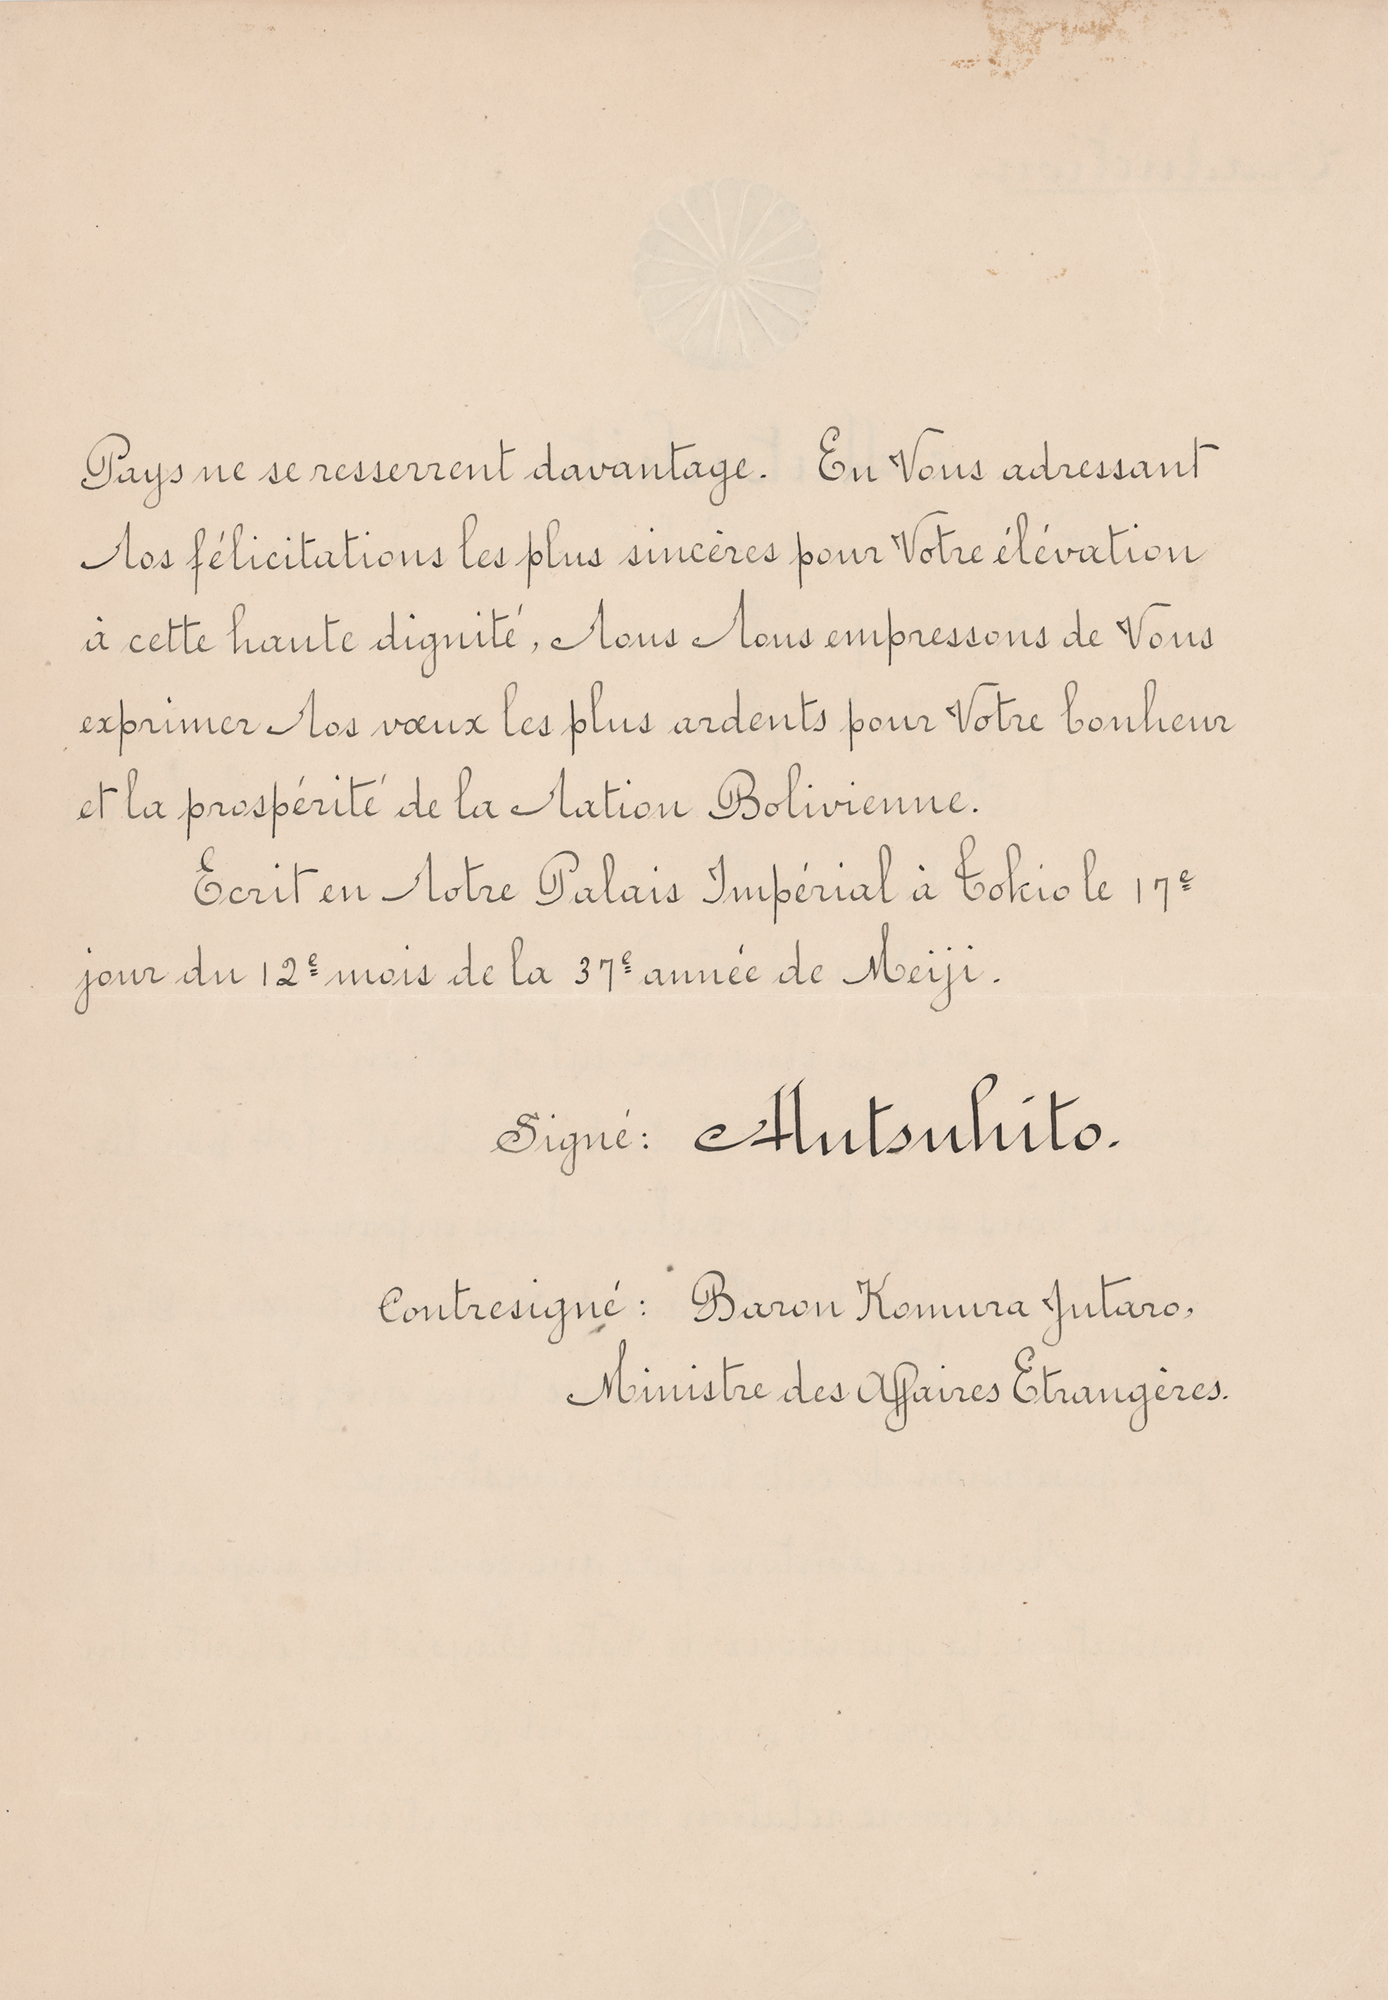 Pays ne se resserrent davantage. En Vous adressant
Nos félicitations les plus sincères pour Votre élévation
à cette haute dignité, Nous Nous empressons de Vous
exprimer Nos vœux les plus ardents pour Votre bonheur
et la prospérité de la Nation Bolivienne.
Ecrit en Notre Palais Impérial à Tokio le 17e
jour du 12e mois de la 37e année de Meiji.
Signé: Mutsuhito.
Contresigné: Baron Komura Jutaro,
Ministre des Affaires Etrangères.